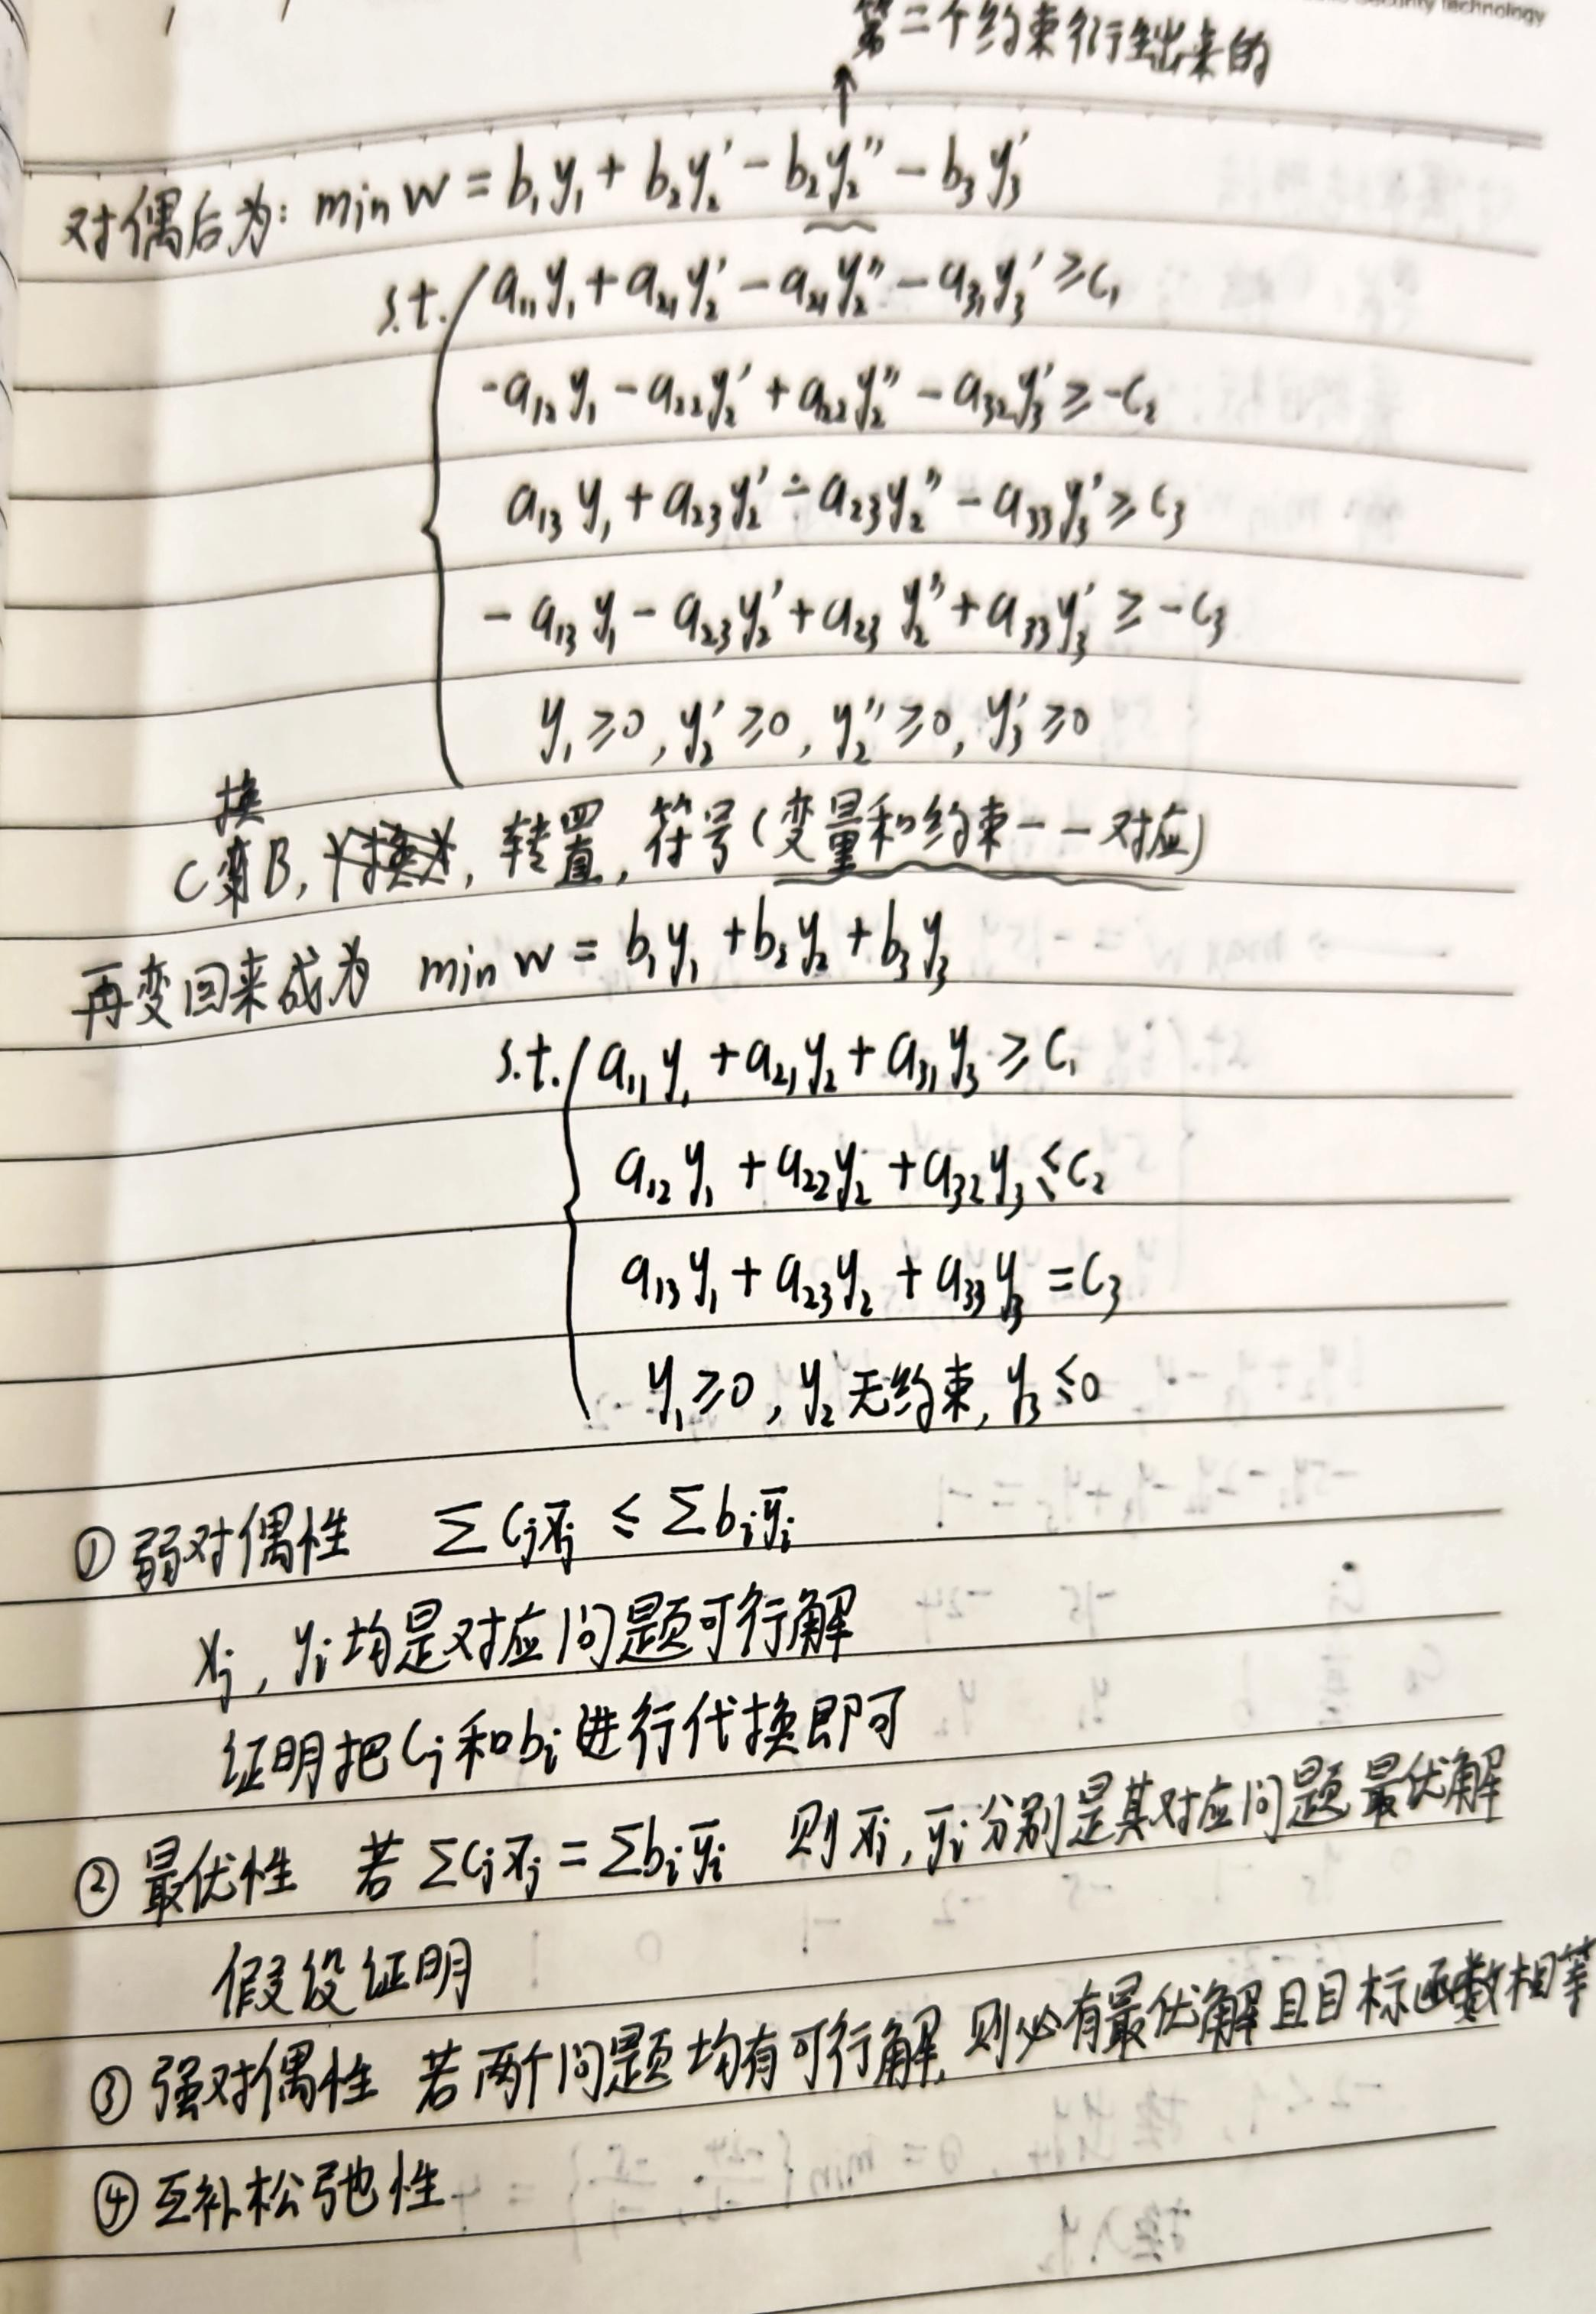 Security technology
第二个约束衍生出来的
↑
对偶后为: min w = b₁y₁ + b₂y₂' - b₂y₂'' - b₃y₃'
s.t. a₁₁y₁ + a₂₁y₂' - a₂₁y₂'' - a₃₁y₃' ≥ c₁
-a₁₂y₁ - a₂₂y₂' + a₂₂y₂'' - a₃₂y₃' ≥ -c₂
a₁₃y₁ + a₂₃y₂' - a₂₃y₂'' - a₃₃y₃' ≥ c₃
-a₁₃y₁ - a₂₃y₂' + a₂₃y₂'' + a₃₃y₃' ≥ -c₃
y₁ ≥ 0, y₂' ≥ 0, y₂'' ≥ 0, y₃' ≥ 0
换
C变B, 转置, 符号(变量和约束一一对应)
再变回来成为 min w = b₁y₁ + b₂y₂ + b₃y₃
s.t. a₁₁y₁ + a₂₁y₂ + a₃₁y₃ ≥ c₁
a₁₂y₁ + a₂₂y₂ + a₃₂y₃ ≤ c₂
a₁₃y₁ + a₂₃y₂ + a₃₃y₃ = c₃
y₁ ≥ 0, y₂无约束, y₃ ≤ 0
① 弱对偶性 Σcⱼx̄ⱼ ≤ Σbᵢȳᵢ
xⱼ, yᵢ均是对应问题可行解
证明把cⱼ和bᵢ进行代换即可
② 最优性 若Σcⱼx̄ⱼ = Σbᵢȳᵢ 则x̄ⱼ, ȳᵢ分别是其对应问题最优解
假设证明
③ 强对偶性 若两个问题均有可行解, 则必有最优解且目标函数相等
④ 互补松弛性